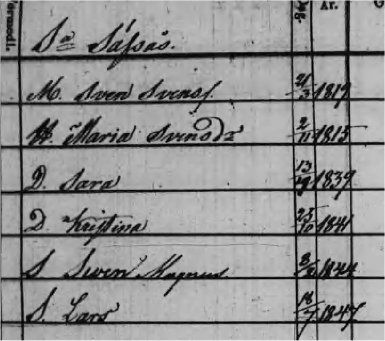 År.
Sa Säfsås.
M. Sven Svensf. 21/3 1819
H. Maria Svensdr 2/11 1815
D. Sara 1839
D. Kristina 25/10 1841
S. Swen Magnus 1844
S. Lars 18/7 1847